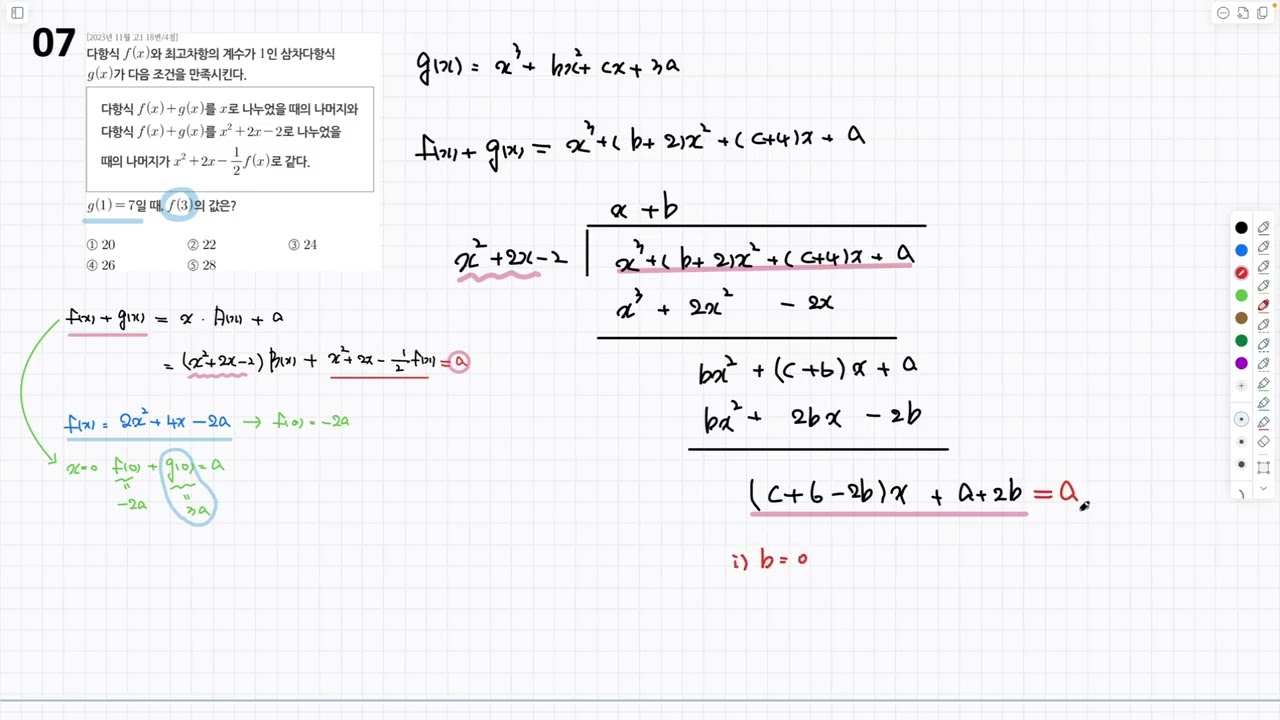 07
[2023년 11월 고1 18번/4점]
다항식 f(x)와 최고차항의 계수가 1인 삼차다항식
g(x)가 다음 조건을 만족시킨다.
다항식 f(x)+g(x)를 x로 나누었을 때의 나머지와
다항식 f(x)+g(x)를 x²+2x-2로 나누었을
때의 나머지가 x²+2x-1/2f(x)로 같다.
g(1)=7일 때, f(3)의 값은?
① 20 ② 22 ③ 24
④ 26 ⑤ 28
f(x)+g(x) = x·A(x)+a
= (x²+2x-2)B(x)+x²+2x-1/2f(x)=a
f(x)=2x²+4x-2a → f(0)=-2a
x=0 f(0)+g(0)=a
" "
-2a 3a
g(x)=x³+bx²+cx+3a
f(x)+g(x)=x³+(b+2)x²+(c+4)x+a
x+b
x²+2x-2 x³+(b+2)x²+(c+4)x+a
x³+2x² -2x
bx²+(c+6)x+a
bx²+2bx-2b
(c+6-2b)x+a+2b=a
i) b=0